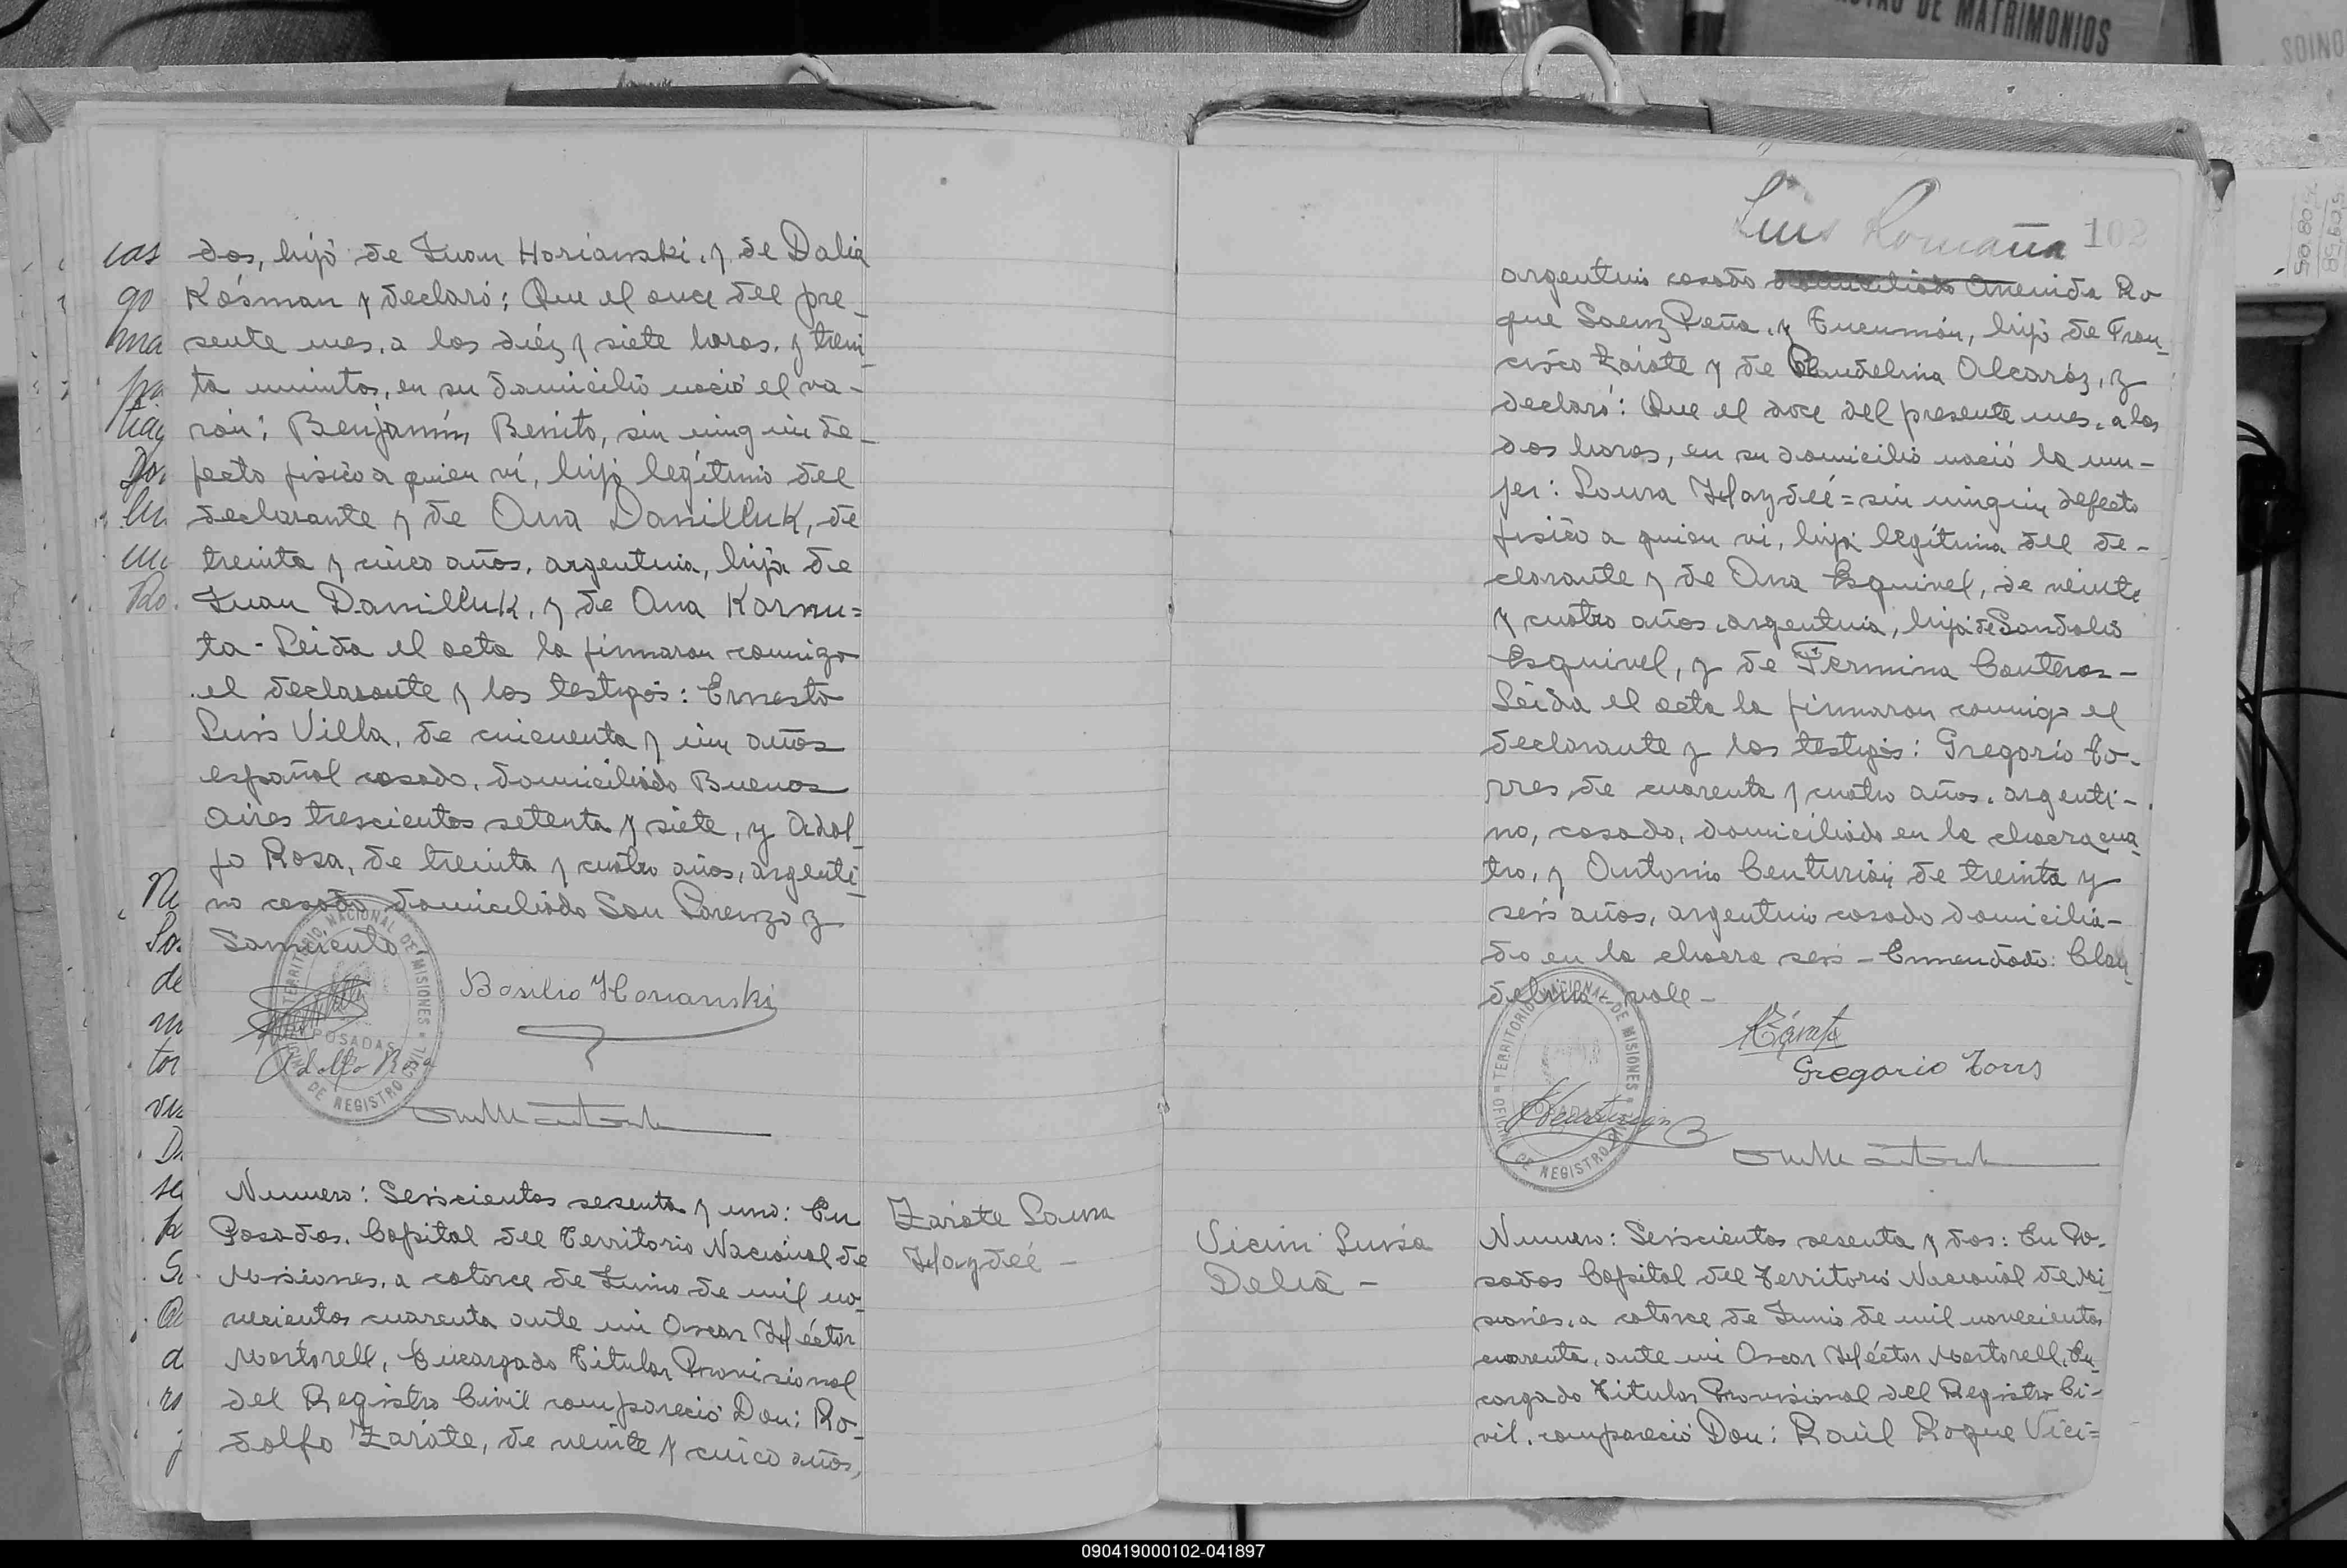 DE MATRIMONIOS
dos, hijo de Juan Horianski, y de Dalia
Kósman y declaró: Que el once del pre-
sente mes, a las diéz y siete horas, y trein-
ta minutos, en su domicilio nació el va-
rón: Benjamín Benito, sin ningún de-
fecto fisico a quien ví, hijo legítimo del
declarante y de Ana Danilluk, de
treinta y cinco años, argentina, hija de
Juan Danilluk, y de Ana Karmu=
ta - Leida el acta la firmaron conmigo
el declarante y los testigos: Ernesto
Luis Villa, de cincuenta y un años
español casado, domiciliado Buenos
Aires trescientos setenta y siete, y Adol-
fo Rosa, de treinta y cuatro años, argenti-
no casado domiciliado San Lorenzo y
Sarmiento
TERRITORIO NACIONAL DE MISIONES
POSADAS
DE REGISTRO CIVIL
Basilio Horianski
Adolfo Rosa
Numero: Seiscientos sesenta y uno: En
Posadas, Capital del Territorio Nacional de
Misiones, a catorce de Junio de mil no-
vecientos cuarenta ante mi Oscar Héctor
Martorell, Encargado Titular Provisional
del Registro Civil compareció Don: Ro-
dolfo Zaráte, de veinte y cinco años,
Zaráte Laura
Haydeé -
Luis Romaña
102
argentino casado domiciliado Avenida Ro
que Saenz Peña, y Tucumán, hijo de Fran-
cisco Zaráte y de Claudelina Alcaráz, y
declaró: Que el doce del presente mes, a las
dos horas, en su domicilio nació la mu-
jer: Laura Haydeé = sin ningún defecto
fisico a quien vi, hija legítima del de-
clarante y de Ana Esquivel, de veinte
y cuatro años, argentina, hija de Sandalio
Esquivel, y de Fermina Canteros -
Leida el acta la firmaron conmigo el
declarante y los testigos: Gregorio To-
rres, de cuarenta y cuatro años, argenti-
no, casado, domiciliado en la chacra cua-
tro, y Antonio Centurión de treinta y
seis años, argentino casado domicilia-
do en la chacra seis - Enmendado: Clau
delina - vale -
TERRITORIO NACIONAL DE MISIONES
POSADAS
OFICINA DE REGISTRO CIVIL
RZárate
Gregorio Torres
Vicini Luisa
Delia -
Numero: Seiscientos sesenta y dos: En Po-
sadas Capital del Territorio Nacional de Mi
siones, a catorce de Junio de mil novecientos
cuarenta, ante mi Oscar Héctor Martorell, En-
cargado Titular Provisional del Registro Ci-
vil, compareció Don: Raúl Roque Vici=
090419000102-041897